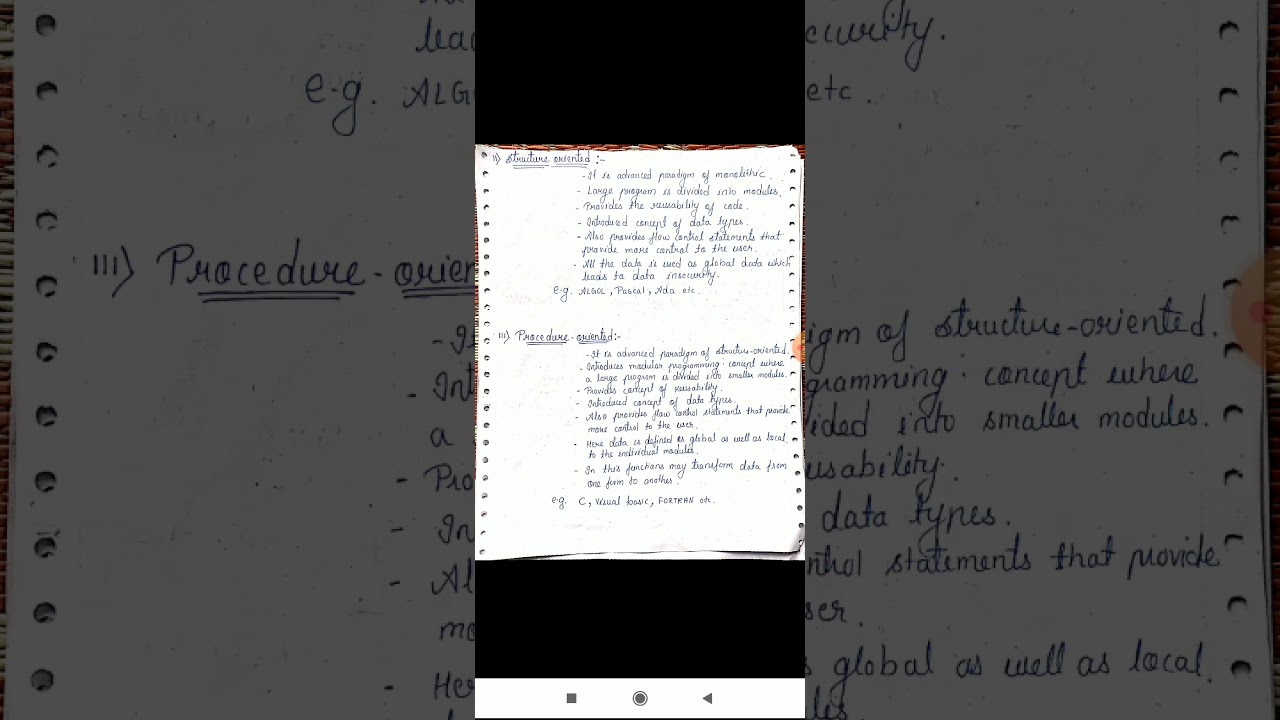 II) Structure oriented :-
- It is advanced paradigm of monolithic.
- Large program is divided into modules.
- Provides the reusability of code.
- Introduced concept of data types.
- Also provides flow control statements that
provide more control to the user.
- All the data is used as global data which
leads to data insecurity.
e.g. ALGOL, Pascal, Ada etc.
III) Procedure-oriented:-
- It is advanced paradigm of structure-oriented.
- Introduces modular programming concept where
a large program is divided into smaller modules.
- Provides concept of reusability.
- Introduced concept of data types.
- Also provides flow control statements that provide
more control to the user.
- Here data is defined as global as well as local
to the individual modules.
- In this functions may transform data from
one form to another.
e.g. C, Visual basic, FORTRAN etc.